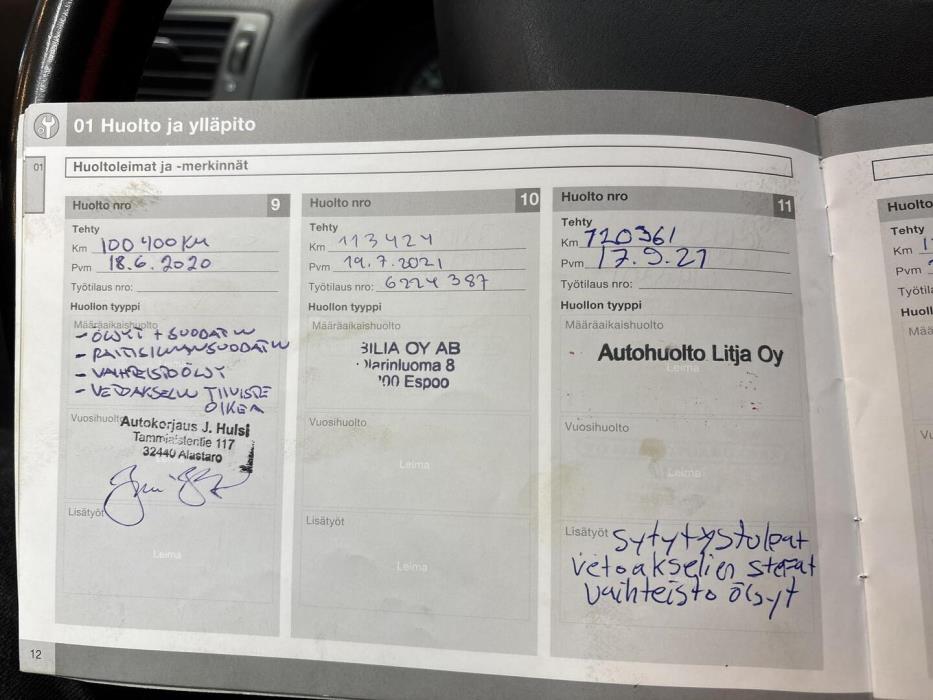 01 Huolto ja ylläpito
01
Huoltoleimat ja -merkinnät
Huolto nro 9
Tehty
Km 100 400 KM
Pvm 18.6.2020
Työtilaus nro:
Huollon tyyppi
Määräaikaishuolto
- ÖLJYT + SUODATIN
- RAITISILMANSUODATIN
- VAIHTEISTOÖLJY
- VETOAKSELIN TIIVISTE
OIKEA
Vuosihuolto
Autokorjaus J. Hulsi
Tammiaistentie 117
32440 Alastaro
Lisätyöt
Leima
Huolto nro 10
Tehty
Km 113424
Pvm 19.7.2021
Työtilaus nro: 6224387
Huollon tyyppi
Määräaikaishuolto
BILIA OY AB
Marinluoma 8
00 Espoo
Vuosihuolto
Leima
Lisätyöt
Leima
Huolto nro 11
Tehty
Km 120361
Pvm 17.9.21
Työtilaus nro:
Huollon tyyppi
Määräaikaishuolto
Autohuolto Litja Oy
Leima
Vuosihuolto
Leima
Lisätyöt sytytystulpat
vetoakselien stefat
vaihteisto öljyt
12
Huolto
Tehty
Km
Pvm
Työtil
Huoll
Määrä
Vu